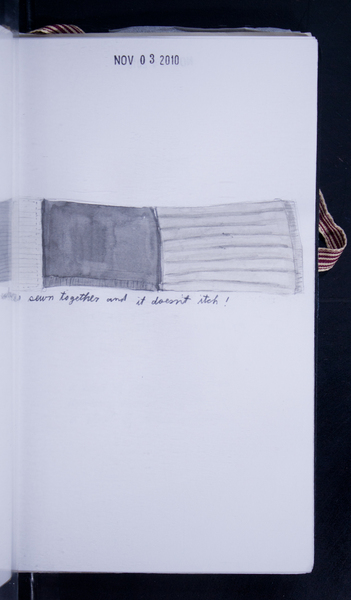 NOV 03 2010
sewn together and it doesn't itch!